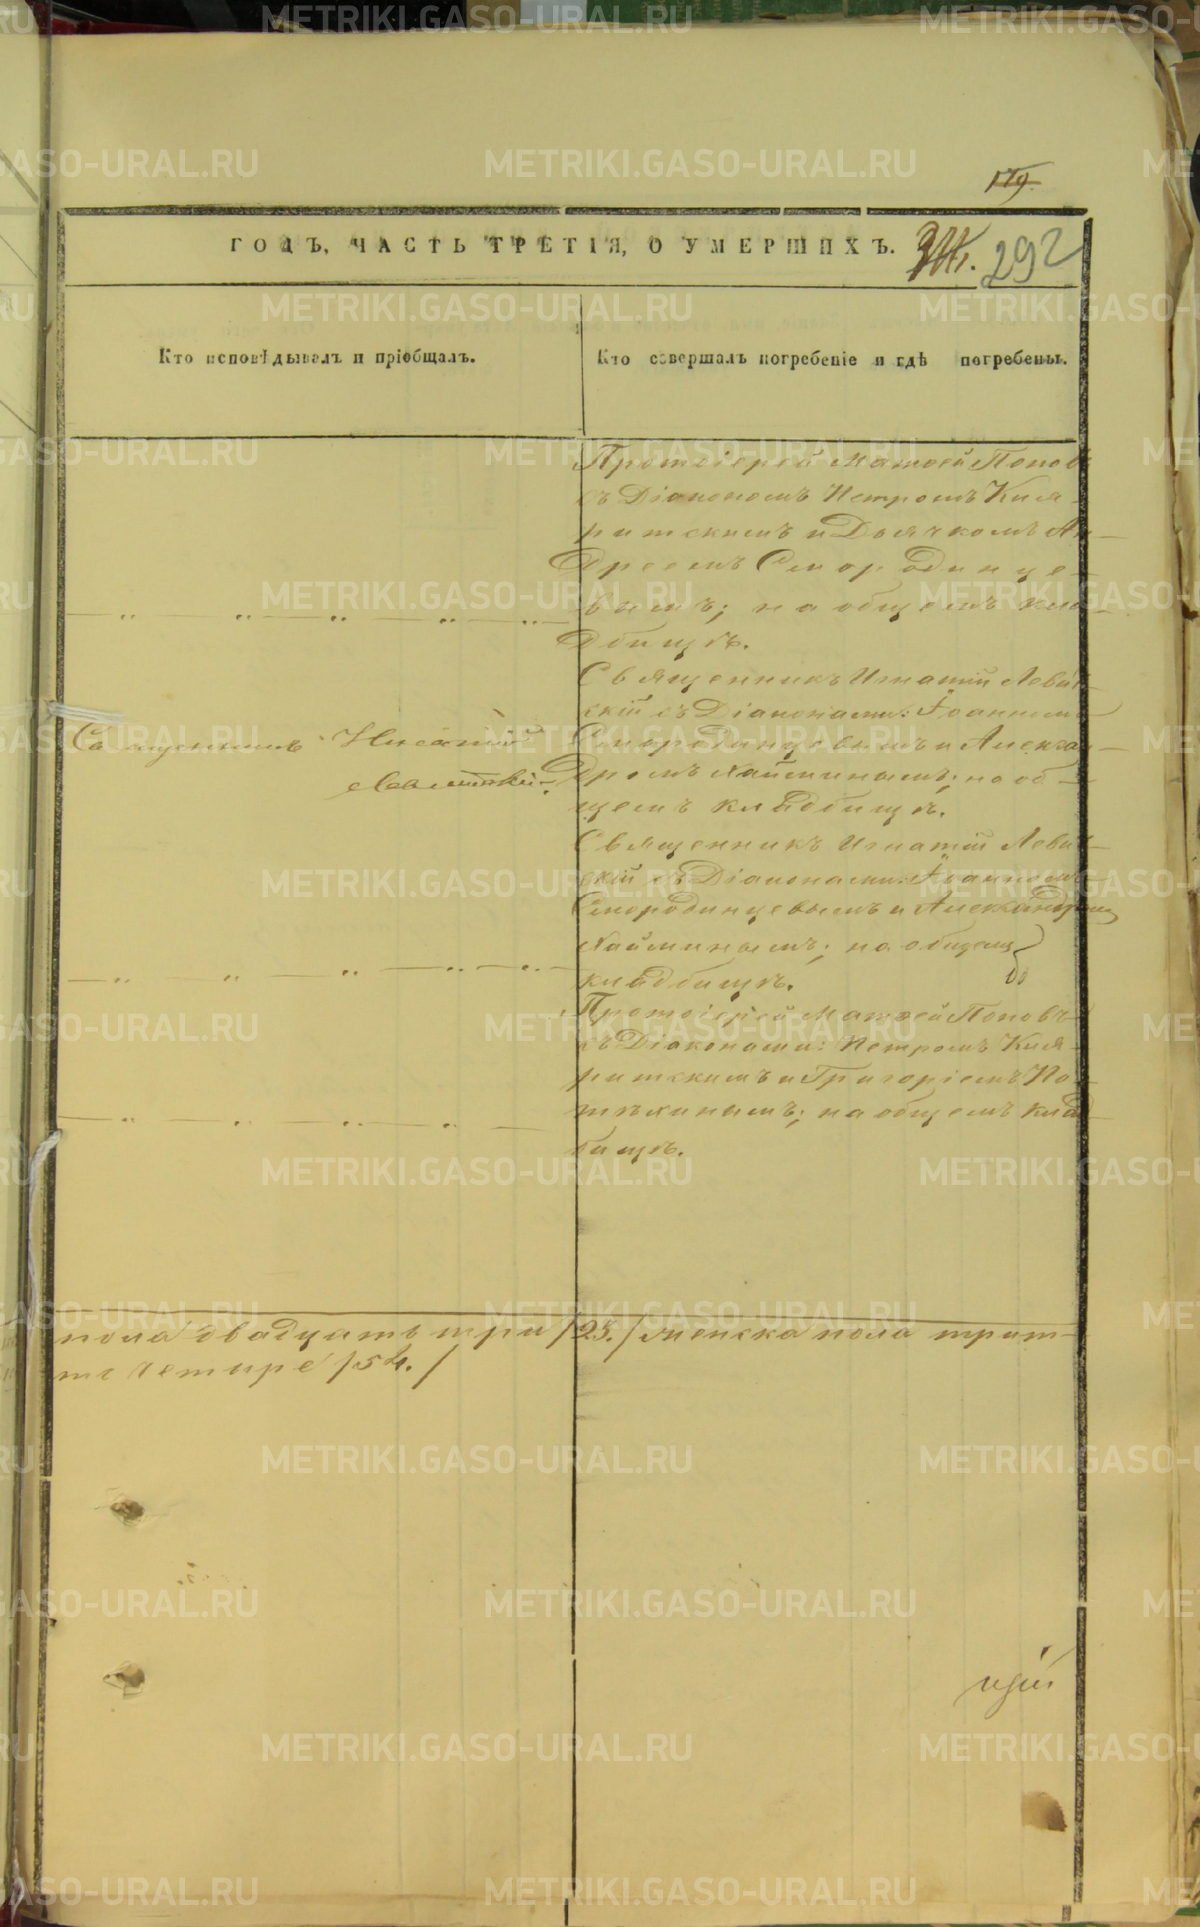 179
ГОДЪ, ЧАСТЬ ТРЕТІЯ, О УМЕРШИХЪ.
292
Кто исповѣдывалъ и пріобщалъ.
Кто совершалъ погребеніе и гдѣ погребены.
Протоіерей Матѳей Поповъ
съ Діакономъ Петромъ Киля-
ритскимъ и Дьячкомъ Ан-
дреемъ Смородинце-
вымъ; на общемъ кла-
дбищѣ.
Священникъ Игнатій Левит-
скій съ Діаконами: Іоанномъ
Смородинцевымъ и Алексан-
дромъ Хайминымъ; на об-
щемъ кладбищѣ.
Священникъ Игнатій
Левитскій.
Священникъ Игнатій Левит-
скій съ Діаконами: Іоанномъ
Смородинцевымъ и Александромъ
Хайминымъ; на общемъ
кладбищѣ.
Протоіерей Матѳей Поповъ
съ Діаконами: Петромъ Киля-
ритскимъ и Григоріемъ По-
тѣхинымъ; на общемъ клад-
бищѣ.
пола двадцать три /23./ женска пола трит-
четыре /54./
цій
METRIKI.GASO-URAL.RU